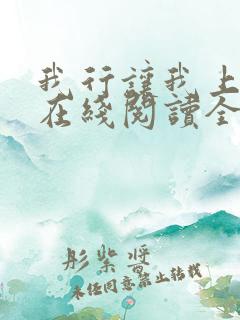 我行讓我上
在綫閱讀全
彤紫醬
未经同意禁止转载